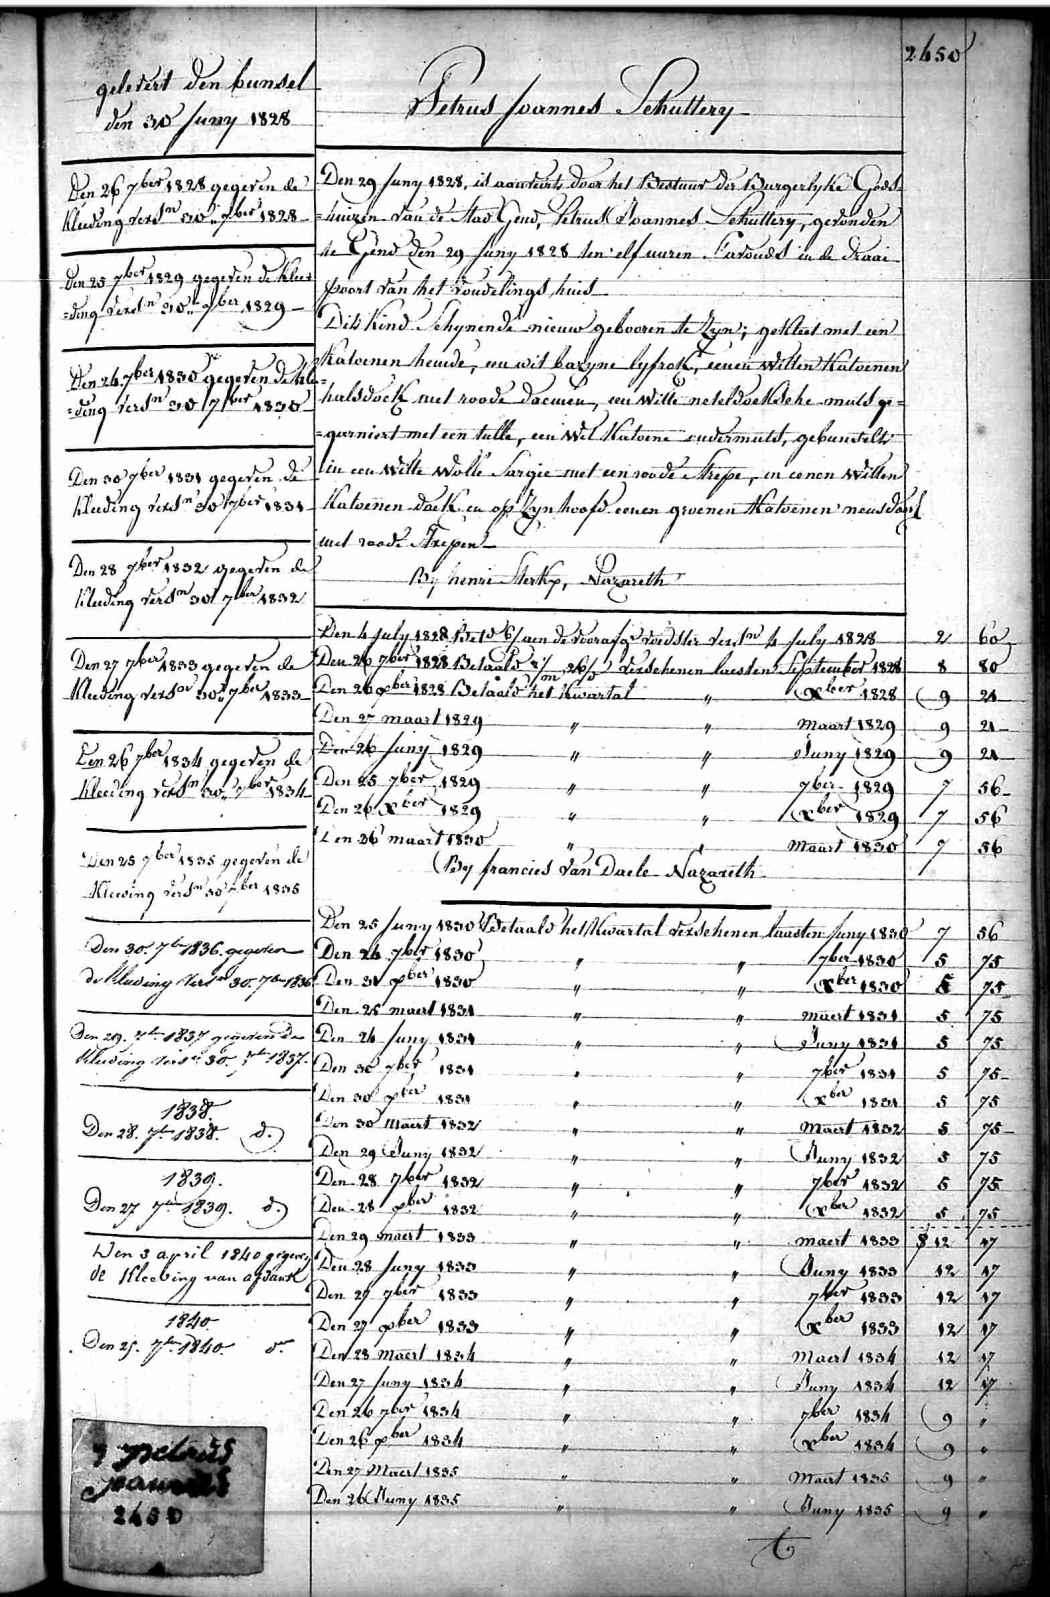 2450
gelevert den bunsel
den 30 Juny 1828
Petrus Joannes Schuttery
Den 26 7ber 1828 gegeven de
kleeding versn 30 7ber 1828
Den 25 7ber 1829 gegeven de klee
=ding versn 30 7ber 1829
Den 24 7ber 1830 gegeven de kle
=ding versn 30 7ber 1830
Den 30 7ber 1831 gegeven de
kleeding versn 30 7ber 1831
Den 28 7ber 1832 gegeven de
kleeding versn 30 7ber 1832
Den 27 7ber 1833 gegeven de
kleeding versn 30 7ber 1833
Den 26 7ber 1834 gegeven de
kleeding versn 30 7ber 1834
Den 25 7ber 1835 gegeven de
kleeding versn 30 7ber 1835
Den 30. 7br 1836. gegeven
de kleeding versn 30. 7br 1836
Den 29. 7br 1837 gegeven de
kleeding versn 30. 7br 1837.
1838.
Den 28. 7br 1838. d.)
1839.
Den 27 7br 1839. d.)
Den 3 april 1840 gegeven
de kleeding van afdank
1840
Den 25. 7br 1840. do
Petrus
Joannes
2450
Den 29 Juny 1828, is aanveird door het Bestuur der Burgerlyke Gods=
=huizen van de Stad Gend, Petrus Joannes Schuttery, gevonden
te Gend den 29 Juny 1828 ten elf uuren s'avonds in de draai
poort van het vondelings huis
Dit Kind Schynende nieuw gebooren te Zyn; gekleet met een
Katoenen hemde, een wit bazyne lyfrok, eenen Witten Katoenen
halsdoek met roode bloemen, een Witte neteldoeksche muts ge=
=garniert met een tulle, een Wit Katoene ondermuts, gebunselt
in een Witte Wolle Sargie met een roode Strepe, in eenen Witten
Katoenen doek en op Zyn hoofd eenen groenen Katoenen neusdoek
met roode Strepen
By henri Sterkx, Nazareth
Den 4 July 1828 Bet. 6/ aen de voorafge voedster versn 4 July 1828 2 60
Den 26 7ber 1828 Betaald 2/m 26/d verschenen laesten September 1828 8 80
Den 26 xber 1828 Betaald het Kwartal " Xber 1828 9 21
Den 27 maart 1829 " " Maart 1829 9 21
Den 26 Juny 1829 " " Juny 1829 9 21
Den 25 7ber 1829 " " 7ber 1829 7 56
Den 26 Xber 1829 " " Xber 1829 7 56
Den 26 maart 1830 " " Maart 1830 7 56
By francies Van Daele Nazareth
Den 25 Juny 1830 Betaald het Kwartal verschenen laasten Juny 1830 7 56
Den 24 7ber 1830 " " 7ber 1830 5 75
Den 31 xber 1830 " " Xber 1830 5 75
Den 25 maert 1831 " " maert 1831 5 75
Den 24 Juny 1831 " " Juny 1831 5 75
Den 30 7ber 1831 " " 7ber 1831 5 75
Den 30 xber 1831 " " Xber 1831 5 75
Den 30 Maert 1832 " " Maert 1832 5 75
Den 29 Juny 1832 " " Juny 1832 5 75
Den 28 7ber 1832 " " 7ber 1832 5 75
Den 28 xber 1832 " " Xber 1832 5 75
Den 29 maert 1833 " " maert 1833 12 17
Den 28 Juny 1833 " " Juny 1833 12 17
Den 27 7ber 1833 " " 7ber 1833 12 17
Den 27 xber 1833 " " Xber 1833 12 17
Den 28 Maert 1834 " " Maert 1834 12 17
Den 27 Juny 1834 " " Juny 1834 12 17
Den 26 7ber 1834 " " 7ber 1834 9 "
Den 26 xber 1834 " " Xber 1834 9 "
Den 27 Maert 1835 " " Maert 1835 9 "
Den 26 Juny 1835 " " Juny 1835 9 "